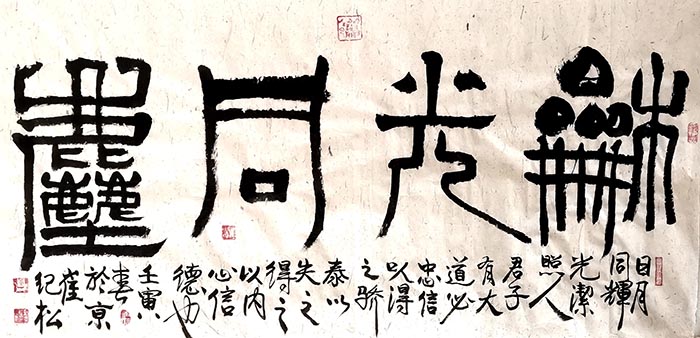 龢光同塵
日月
同輝
光潔
照人
君子
有大
道必
忠信
以得
之驕
泰以
失之
得之
以内
心信
德也
壬寅
春
於京
崔
纪松